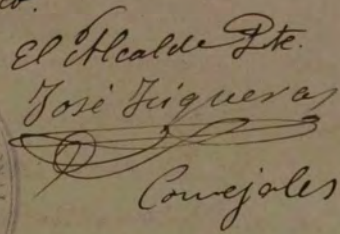 co.
El Alcalde Pte.
José Figueras
Concejales